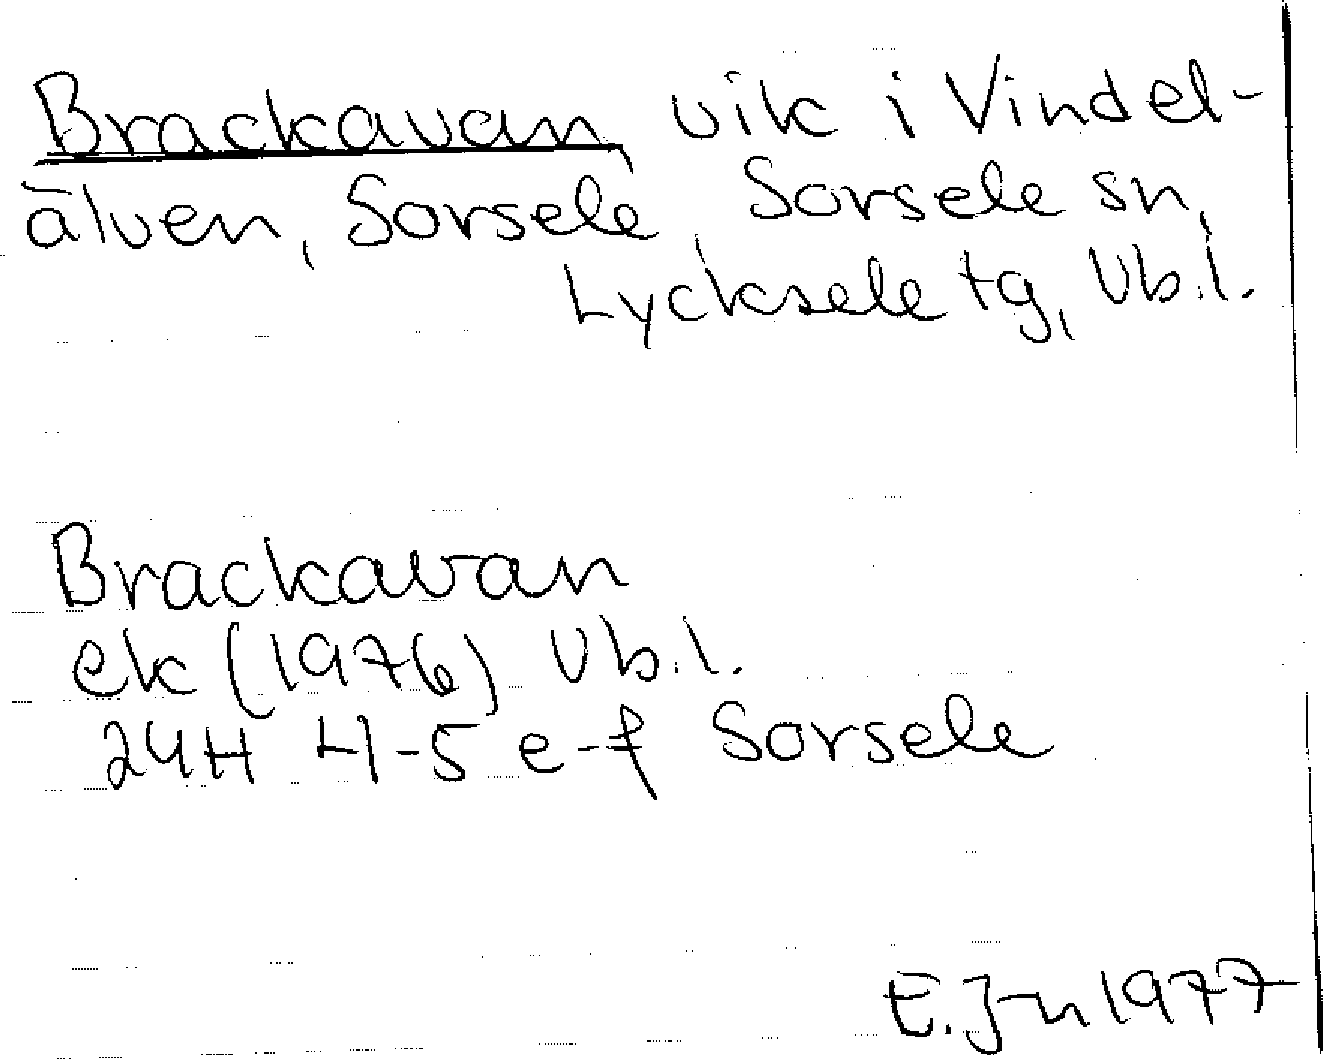 Brackavan, vik i Vindel-
älven, Sorsele, Sorsele sn,
Lycksele tg, Vb.l.
Brackavan
ek (1976) Vb.l.
24H 4-5 e-f Sorsele
E. J-n 1977